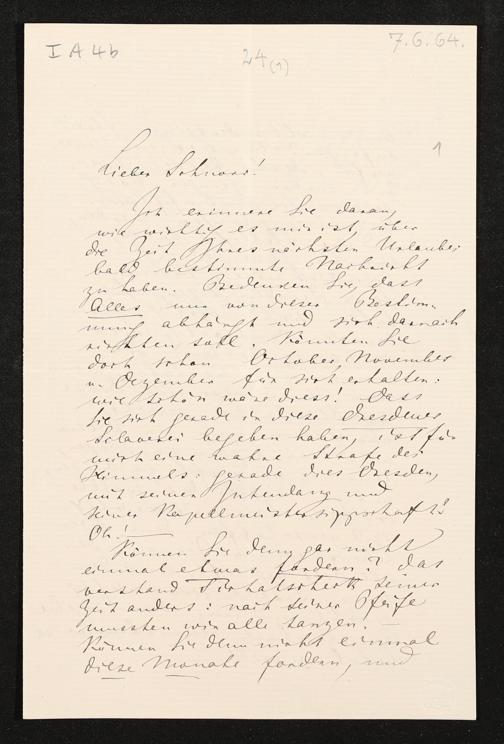 I A 4b
7.6.64.
24(1)
1
Lieber Schnorr!
Ich erinnere Sie daran,
wie wichtig es mir ist, über
die Zeit Ihres nächsten Urlaubes
bald bestimmte Nachricht
zu haben. Bedenken Sie, dass
Alles nur von dieser Bestim-
mung abhängt und sich darnach
richten soll. Könnten Sie
doch schon October, November
u. Dezember für sich erhalten:
wie schön wäre diess! Dass
Sie sich gerade in diese Dresdener
Sclaverei begeben haben, ist für
mich eine wahre Strafe des
Himmels: gerade dies Dresden,
mit seiner Intendanz und
seiner Kapellmeistersippschaft!
Oh! —
Können Sie denn gar nicht
einmal etwas fordern? Das
verstand Tichatscheck seiner
Zeit anders: nach seiner Pfeife
mussten wir alle tanzen. —
Können Sie denn nicht einmal
diese Monate fordern, und